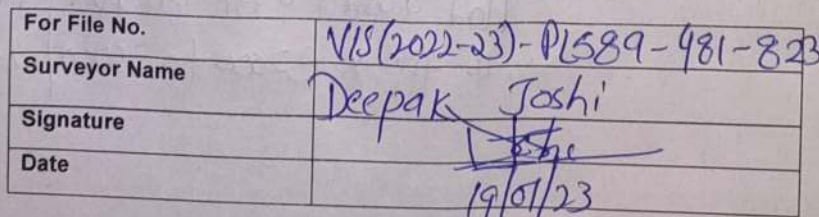 For File No. VIS(2022-23)-PL589-481-823
Surveyor Name Deepak Joshi
Signature
Date 19/01/23